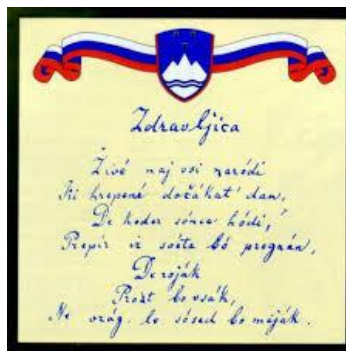 Zdravljica
Živé naj vsi naródi
Ki hrepené dočakat' dan,
De koder sónce hódi,
Prepír iz svéta bó pregnàn,
De roják
Prost bo vsák,
Ne vrág, le sósed bo mêják.